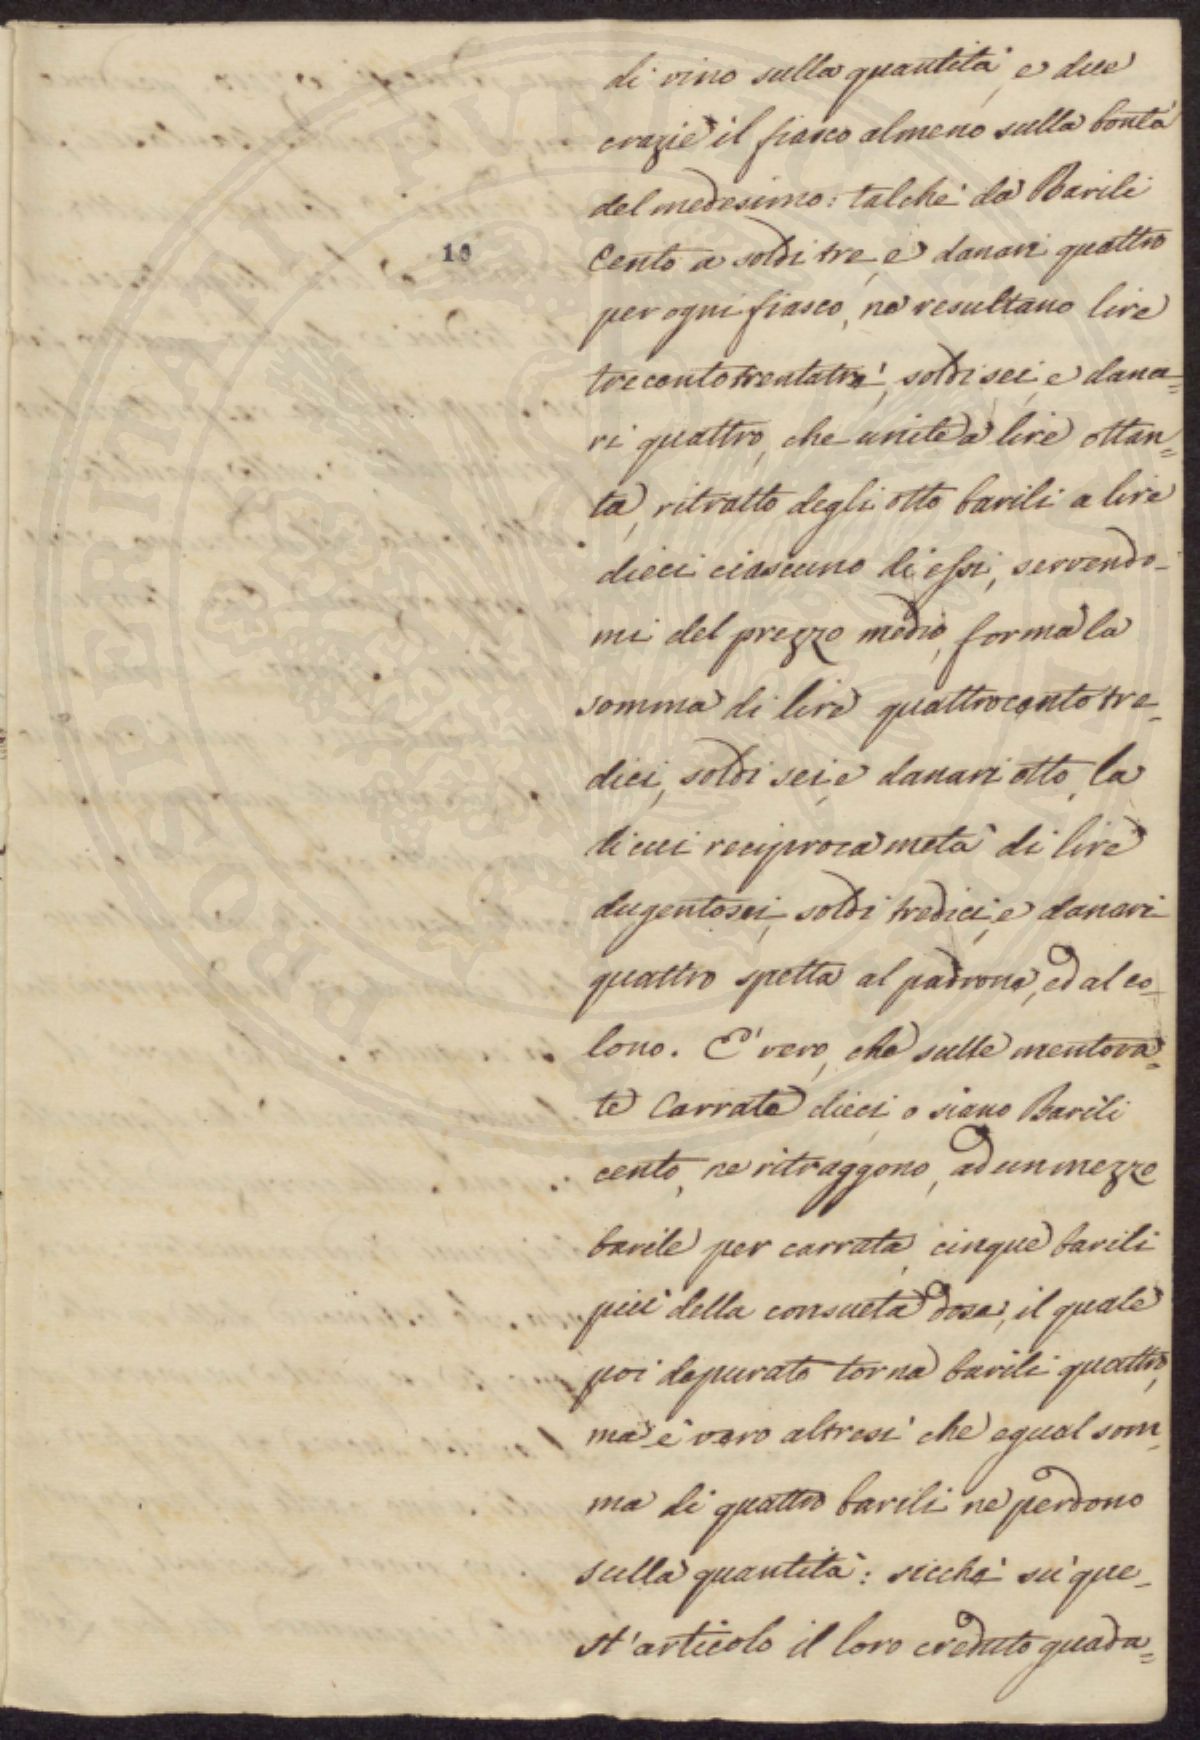 di vino sulla quantità, e due
crazie il fiasco almeno sulla bontà
del medesimo: talchè da Barili
Cento a soldi tre, e danari quattro
per ogni fiasco, ne resultano lire
trecentotrentatrè, soldi sei, e dana=
ri quattro, che unite a lire ottan=
ta, ritratto degli otto barili a lire
dieci ciascuno di essi, servendo-
mi del prezzo medio, forma la
somma di lire quattrocentotre-
dici, soldi sei, e danari otto, la
di cui reciproca metà di lire
dugentosei, soldi tredici, e danari
quattro spetta al padrone, ed al co-
lono. E' vero, che sulle mentova=
te Carrate dieci, o siano Barili
cento, ne ritraggono, ad un mezzo
barile per carrata, cinque barili
più della consueta dose, il quale
poi depurato torna barili quattro,
ma è vero altresì che egual som-
ma di quattro barili ne perdono
sulla quantità: sicchè su que-
st'articolo il loro creduto guada=
10
PROSPERITATI PVBLICAE